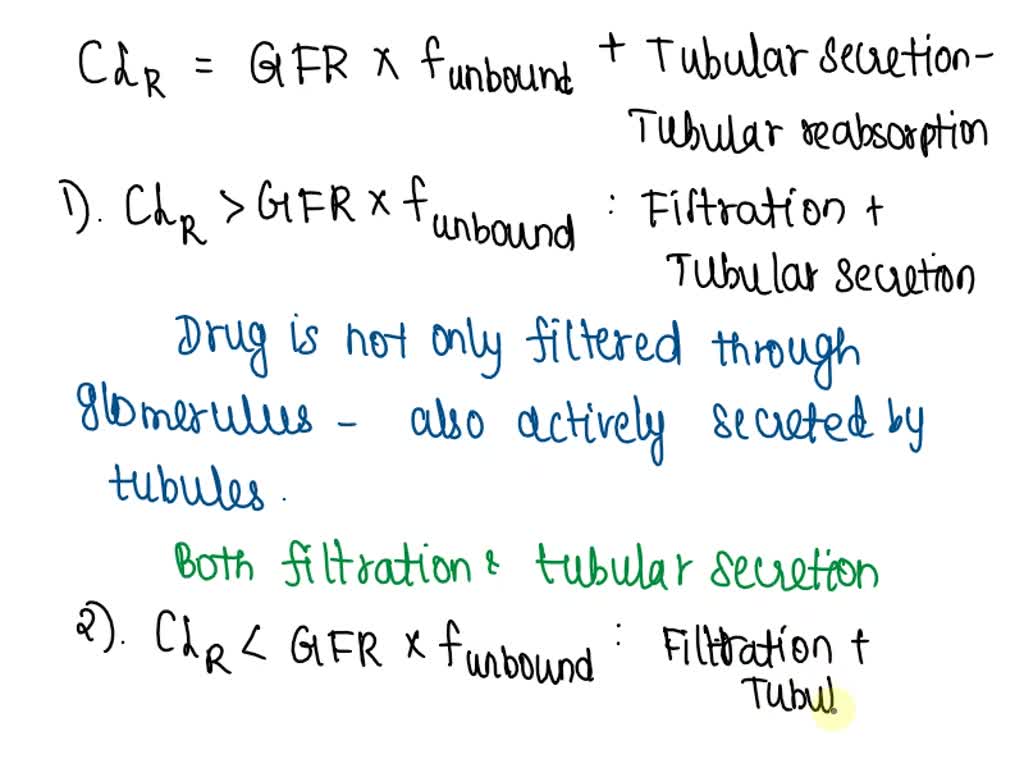 CLR = GFR × funbound + Tubular secretion -
Tubular reabsorption
1). CLR > GFR × funbound : Filtration +
Tubular secretion
Drug is not only filtered through
glomerulus - also actively secreted by
tubules.
Both filtration & tubular secretion
2). CLR < GFR × funbound : Filtration +
Tubul